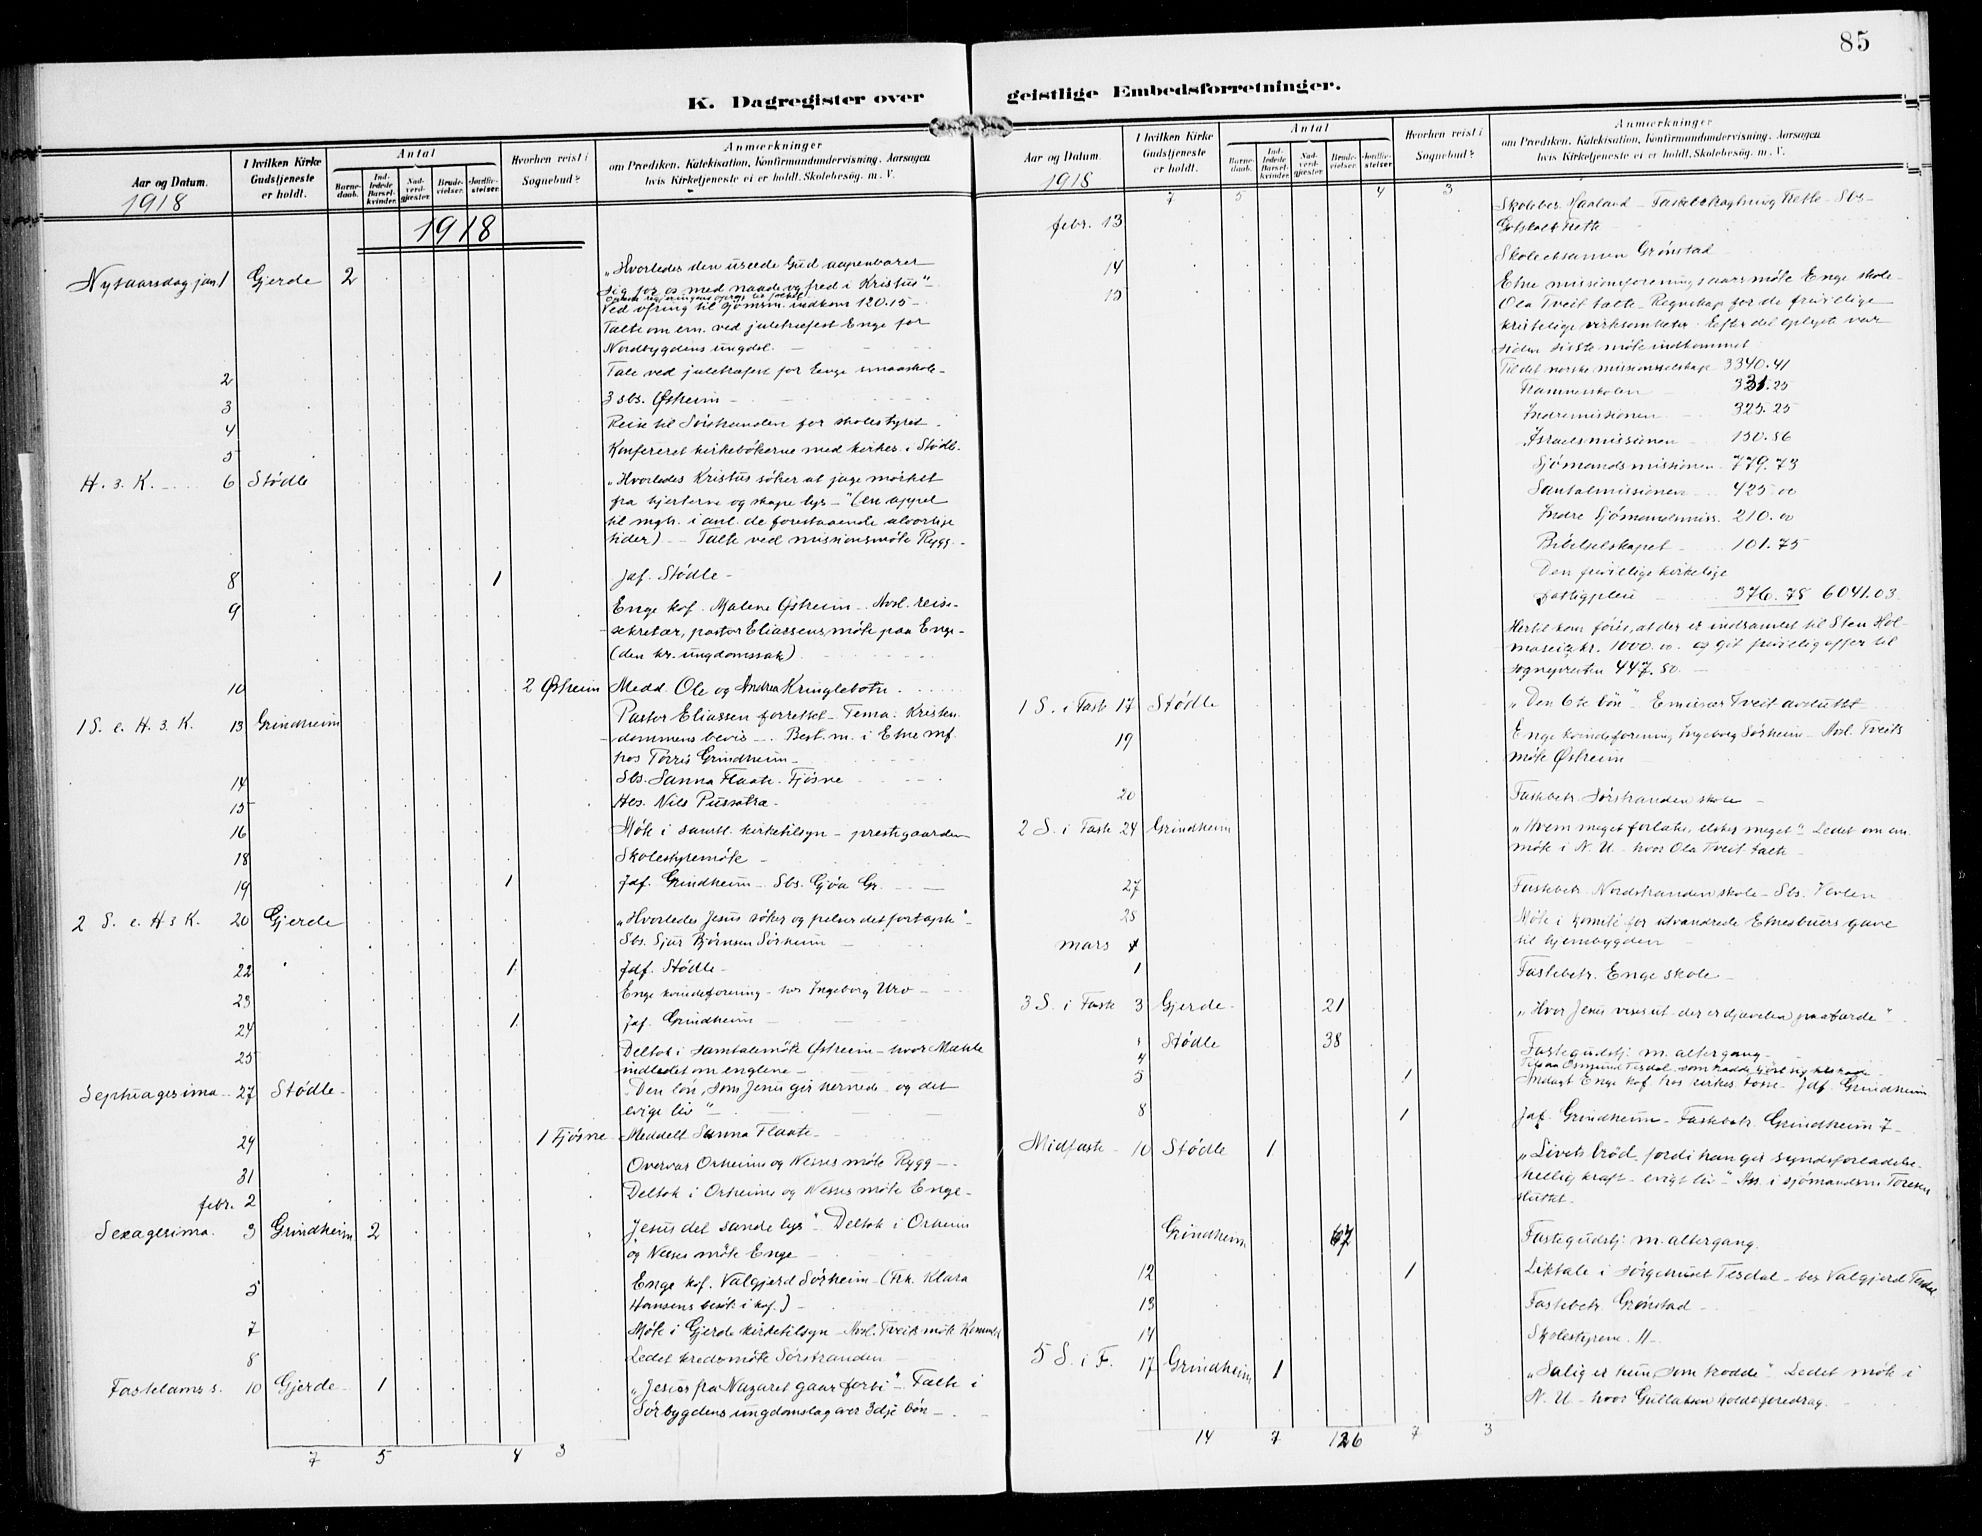 85
K. Dagregister over
Aar og Datum.
1918
I hvilken Kirke Gudstjeneste er holdt.
Antal
Barne-daab.
Ind-ledede Barsel-kvinder.
Nad-verd-gjæster.
Brude-vielser.
Jordfæ-stelser.
Hvorhen reist i Sognebud?
Anmærkninger
om Prædiken, Katekisation, Konfirmandundervisning, Aarsagen
hvis Kirketjeneste ei er holdt. Skolebesøg. m. V.
1918
Nytaarsdag jan 1 Gjerde 2 „Hvorledes den usede Gud aapenbarer
sig for os med naade og fred i Kristus“ –
Ved ofring til sjømm. indkom 120.15 –
Talte om em. ved juletræfest Enge for
Nordbygdens ungdsl. –
2 Tale ved juletræfest for Enge smaaskole –
3 3 sbs. Østheim –
4 Reise til Sørstranden for skolestyret.
5 Konfereret kirkebøkerne med kirkes. i Stødle.
H. 3. K. 6 Stødle „Hvorledes Kristus søker at jage mørket
fra hjerterne og skape lys – “ (en appel
til mgh. i anl. de forestaaende alvorlige
tider) – Talte ved missionsmøte Rygg. –
8 1 Jdf. Stødle –
9 Enge kof. Malene Østheim – Avsl. reise-
sekretær, pastor Eliassens møte paa Enge –
(den kr. ungdomssak)
10 2 Østheim Medd. Ole og Andrea Kringlebotn.
1 S. e. H. 3. K. 13 Grindheim Pastor Eliassen forrettet – Tema: Kristen-
dommens bevis –. Best. m. i Etne mf.
hos Torris Grindheim –
14 Sbs. Sanna Flaate. Fjøsne –
15 Hes. Nils Pussatra –
16 Møte i saml. kirketilsyn – prestegaarden
18 Skolestyremøte –
19 1 Jdf. Grindheim – Sbs. Gjøa Gr. –
2 S. e. H 3 K. 20 Gjerde „Hvorledes Jesus søker og frelser det fortapte“ –
Sbs. Sjur Bjørnsen Sørheim –
22 1 Jdf. Stødle –
23 Enge kvindeforening – hos Ingeborg Uro –
24 1 Jdf. Grindheim –
25 Deltok i samtalemøte Østheim – hvor Mæhle
indledet om englene –
Septuagesima 27 Stødle „Den løn, som Jesus gir hernede – og det
evige liv“ –
29 1 Fjøsne Meddelt Sanna Flaate –
31 Overvar Orheims og Nesses møte Rygg –
febr. 2 Deltok i Orheims og Nesses møte Enge –
Sexagesima. 3 Grindheim 2 „Jesus det sande lys“ – Deltok i Orheim
og Nesses møte Enge –
5 Enge kof. Valgjerd Sørheim – (Frk. Klara
Hansens besøk i kof.) –
7 Møte i Gjerde kirketilsyn – Avsl. Tveits møte
8 Ledet kredsmøte Sørstranden –
Fastelamss. 10 Gjerde 1 „Jesus fra Nazaret gaar forbi“ – Talte i
Sørbygdens ungdomslag over 3dje bøn –
7 5 4 3
geistlige Embedsforretninger.
Aar og Datum.
1918
I hvilken Kirke Gudstjeneste er holdt.
Antal
Barne-daab.
Ind-ledede Barsel-kvinder.
Nad-verd-gjæster.
Brude-vielser.
Jordfæ-stelser.
Hvorhen reist i Sognebud?
Anmærkninger
om Prædiken, Katekisation, Konfirmandundervisning, Aarsagen
hvis Kirketjeneste ei er holdt. Skolebesøg. m. V.
7 5 4 3
febr. 13 Skolebes. Haaland – Fastebetragtning Tætte – Sbs –
14 Skoleeksamen Grønstad
15 Etne missionsforenings aarsmøte Enge skole –
Ola Tveit talte – Regnskap for de frivillige
kristelige virksomheter. Efter det oplyste var
siden siste møte indkommet
Til det norske missionsselskap 3340.41
331.25
Indremissionen 325.25
Israelsmissionen 150.86
Sjømandsmissionen 779.73
Santalmissionen 425.00
Indre Sjømandsmiss. 210.00
Bibelselskapet 101.75
Den frivillige kirkelige
fattigpleie 376.78 6041.03
Hertil kan føies, at der er indsamlet til Sten Hol-
kr. 1000.00 og git frivillig offer til
sognepresten 447.50 –
1 S. i Faste 17 Stødle „Den 6te bøn“ – Emissær Tveit avsluttet
19 Enge kvindeforening Ingeborg Sørheim – Avsl. Tveits
møte Østheim –
20 Fastebetr. Sørstranden skole –
2 S. i Faste 24 Grindheim „Hvem meget forlates, elsker meget“ – Ledet om em.
møte i N. U. – hvor Ola Tveit talte –
27 Fastebetr. Nordstranden skole – Sbs.
28 Møte i komité for utvandrede Etnesbuers gave
til hjembygden –
mars 1
1 Fastebetr. Enge skole –
3 S. i Faste 3 Gjerde 21 „Hvor Jesus vises ut – der er djævelen paa færde“ –
Stødle 38 Fastegudstj. m. altergang –
4
5 1 Andagt Enge kof. hos – Jdf. Grindheim
8 1 Jdf. Grindheim – Fastebetr. Grindheim 7 –
Midfaste 10 Stødle 1 „Livets brød, fordi han gir syndsforladelse,
hellig kraft – evigt liv“ – Ass. i sjømandsm. Toresen
sluttet –
Grindheim 67 Fastegudstj. m. altergang.
12 1 Liktale i sørgehuset Tesdal – bes. Valgjerd Tesdal
13 Fastebetr. Grønstad –
14 Skolestyrem. 11 –
5 S. i F. 17 Grindheim 1 „Salig er hun som trodde“ – Ledet møte i
N. U. – hvor Gullaksen holdt foredrag. –
14 7 126 7 3